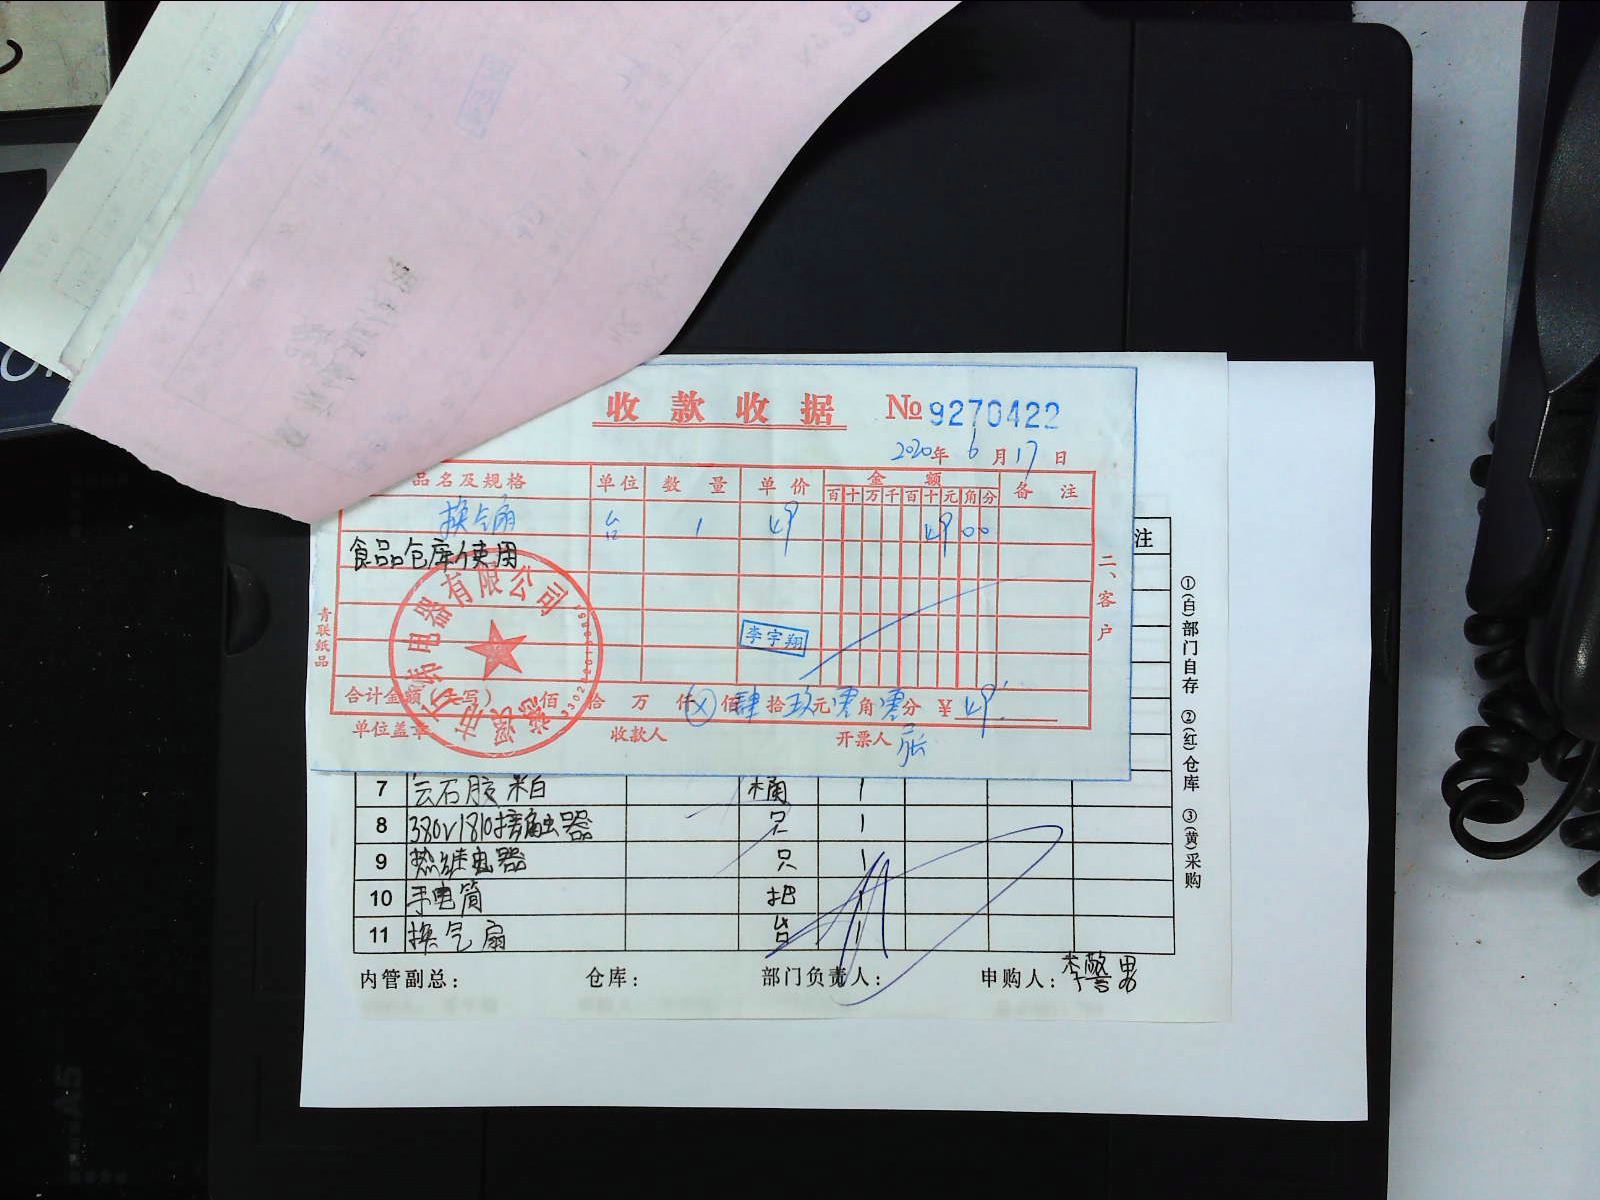 收款收据 № 9270422
2020年 6月17日
品名及规格 单位 数量 单价 金额 备注
百 十 万 千 百 十 元 角 分
换气扇 台 1 49 49 00
食品仓库使用
电器有限公司
李宇翔
二、客户
青联纸品
合计金额 佰 拾 万 仟 ⊗ 佰 肆 拾 玖 元 零 角 零 分 ¥ 49
单位盖章 收款人 开票人
注
7 云石胶 米白 桶 1
8 380V1810接触器 只 1
9 热继电器 只 1
10 手电筒 把 1
11 换气扇 台 1
内管副总: 仓库: 部门负责人: 申购人: 李警男
①(白)部门自存 ②(红)仓库 ③(黄)采购